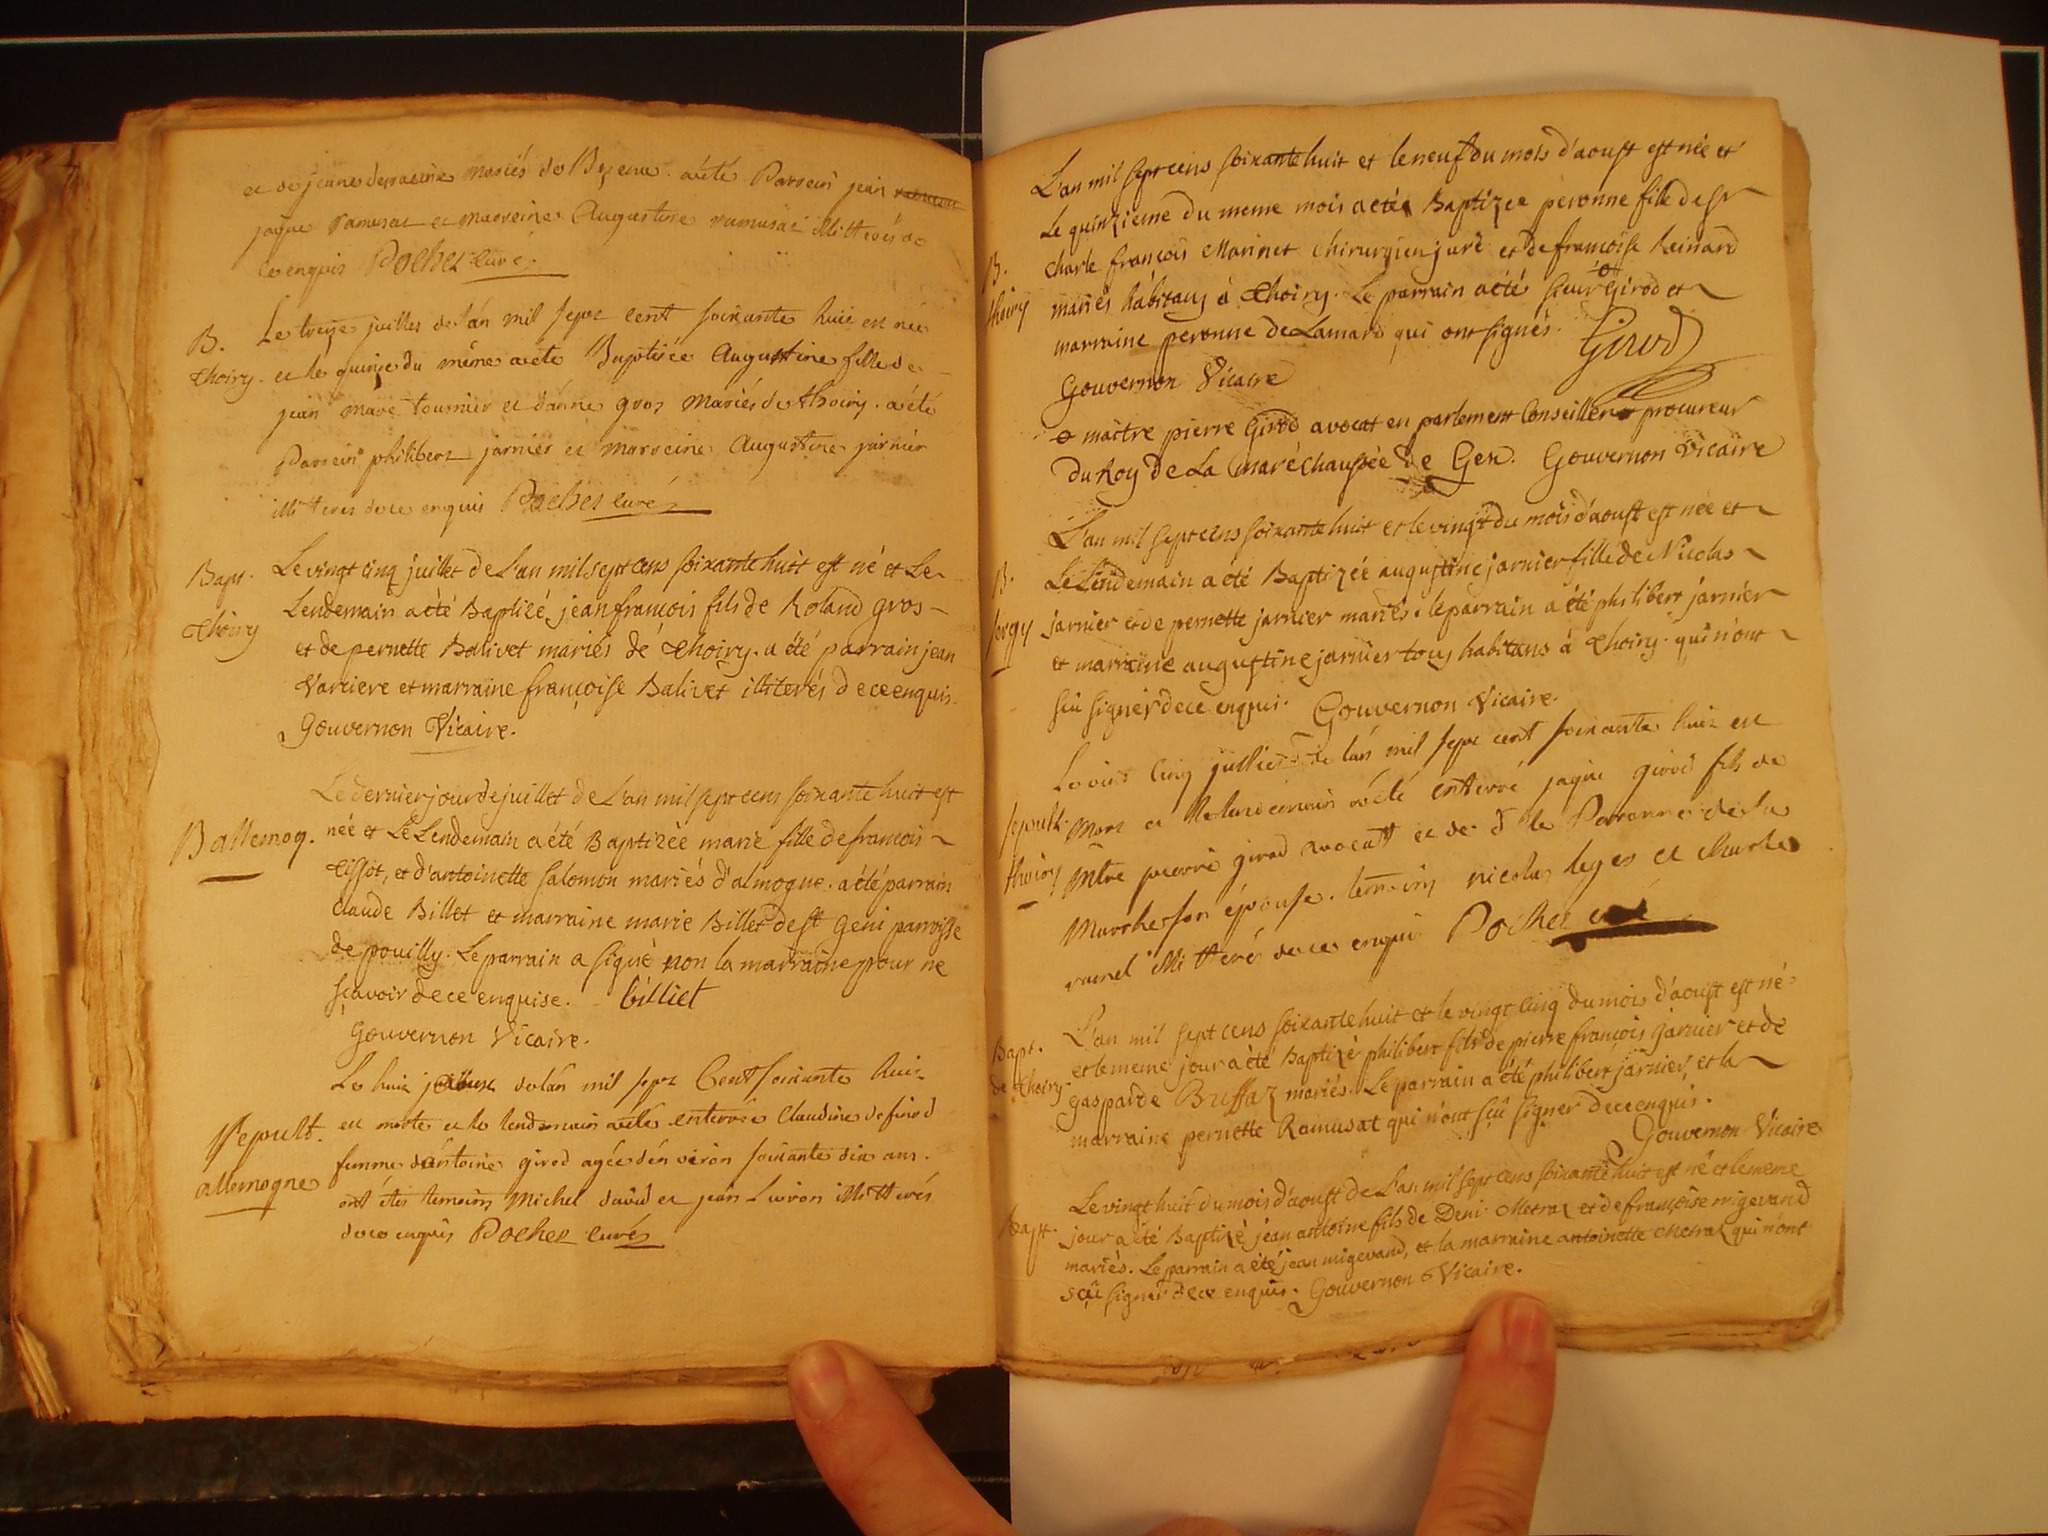 et de jeanne derracine mariés de Bezenne. a été Parrein jean
jaque ramusat et marreine Augustine ramusat illitterés de
ce enquis Pochet curé.
B.
Thoiry.
Le treize juillet de l'an mil sept cent soixante huit est née
et le quinze du même a été Baptisée Augustine fille de
jean marc tournier et d'anne gros mariés de thoiry. a été
Parrein philibert jarnier et marreine Augustine jarnier
illitterés de ce enquis Pochet curé
Bapt.
Thoiry
Le vingt cinq juillet de L'an mil sept cens soixante huit est né et Le
Lendemain a été Baptizé jean françois fils de Roland gros
et de pernette Balivet mariés de Thoiry. a été parrain jean
Varriere et marraine françoise Balivet illiterés de ce enquis.
Gouvernon Vicaire.
B allemog.
Le dernier jour de juillet de L'an mil sept cens soixante huit est
née et Le Lendemain a été Baptizée marie fille de francois
tissot, et d'antoinette salomon mariés d'almogne. a été parrain
claude Billet et marraine marie Billet de st Geni parroisse
de pouilly. Le parrain a signé non la marraine pour ne
sçavoir de ce enquise. billiet
Gouvernon Vicaire.
Sepult.
allemogne
Le huit aoust de l'an mil sept Cent soixante huit
est morte et le lendemain a été enterrée Claudine
femme d'antoine girod agée d'en viron soixante dix ans.
ont étés temoins Michel david et jean Livron illitterés
de ce enquis Pochet curé
B.
thoiry
L'an mil sept cens soixante huit et le neuf du mois d'aoust est née et
Le quinzieme du meme mois a été Baptizée peronne fille de sr
charle françois Marinet chirurgien juré et de françoise Reinard
mariés habitans à Thoiry. Le parrain a été sieur Girod et
marraine peronne de Lamard qui ont signés. Girod
Gouvernon Vicaire
maître pierre Girod avocat en parlement Conseiller procureur
du Roy de La maréchaussée de Gex. Gouvernon Vicaire
B.
sergy
L'an mil sept cens soixante huit et le vingt du mois d'aoust est née et
Le Lendemain a été Baptizée augustine jarnier fille de Nicolas
jarnier et de pernette jarnier mariés. le parrain a été philibert jarnier
et marraine augustine jarnier tous habitans à Thoiry. qui n'ont
sçû signer de ce enquis. Gouvernon Vicaire.
sepult.
thoiry
Le vint cinq juillet de l'an mil sept cent soixante huit est
Mort et le lendemain a été enterré jaque girod fils de
Mtre pierre girod avocat et de de Peronne de la
Marche son épouse. temoins nicolas leger et charle
illitterés de ce enquis Pochet curé
Bapt.
de Thoiry
L'an mil sept cens soixante huit et le vingt cinq du mois d'aoust est né
et le meme jour a été Baptizé philibert fils de pierre françois jarnier et de
gasparde Buffaz mariés. Le parrain a été philibert jarnier, et la
marraine pernette Ramusat qui n'ont sçû signer de ce enquis.
Gouvernon Vicaire
Bapt.
Le vingt huit du mois d'aoust de L'an mil sept cens soixante huit est né et le meme
jour a été Baptizé jean antoine fils de Deni Metral et de françoise migevand
mariés. Le parrain a été jean migevand, et la marraine antoinette Metral qui n'ont
sçû signer de ce enquis. Gouvernon Vicaire.